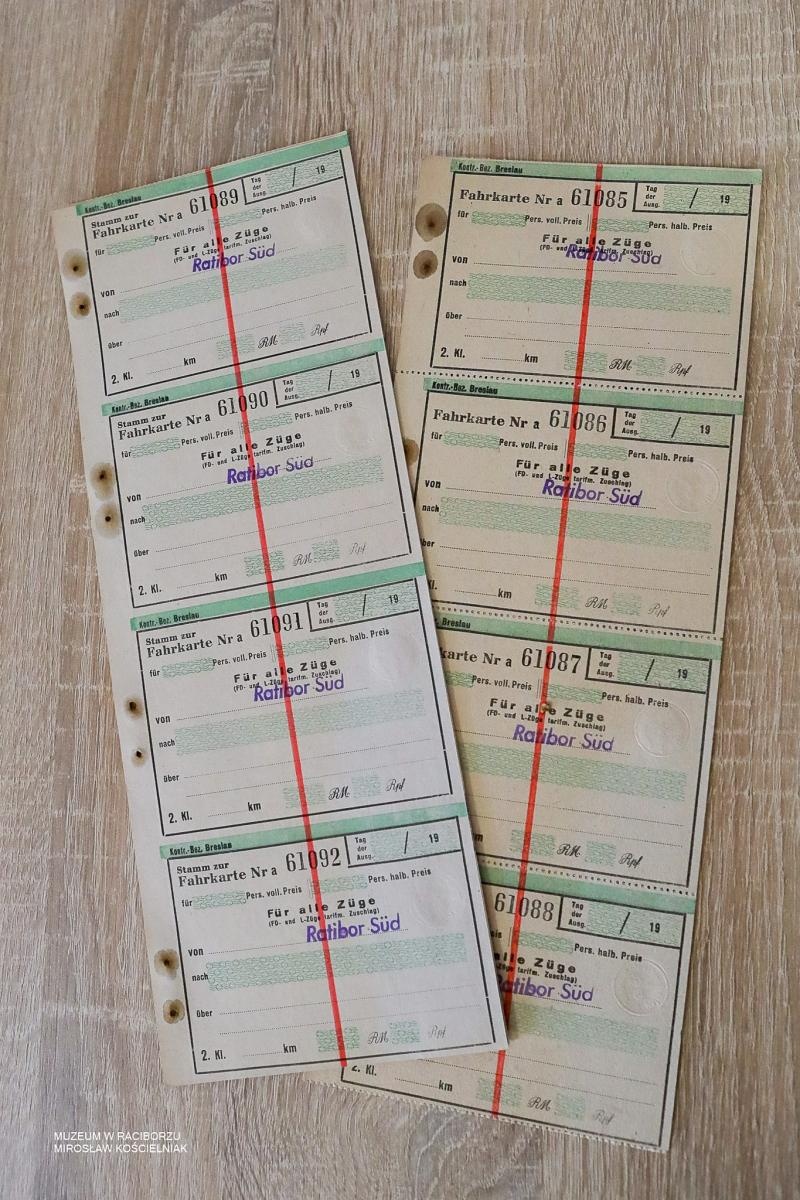 Kontr.-Bez. Breslau
Stamm zur
Fahrkarte Nr a 61089
Tag der Ausg. / 19
für Pers. voll. Preis Pers. halb. Preis
Für alle Züge
(FD- und L-Züge tarifm. Zuschlag)
Ratibor Süd
von
nach
über
2. Kl. km RM Rpf
Kontr.-Bez. Breslau
Stamm zur
Fahrkarte Nr a 61090
Tag der Ausg. / 19
für Pers. voll. Preis Pers. halb. Preis
Für alle Züge
(FD- und L-Züge tarifm. Zuschlag)
Ratibor Süd
von
nach
über
2. Kl. km RM Rpf
Kontr.-Bez. Breslau
Stamm zur
Fahrkarte Nr a 61091
Tag der Ausg. / 19
für Pers. voll. Preis Pers. halb. Preis
Für alle Züge
(FD- und L-Züge tarifm. Zuschlag)
Ratibor Süd
von
nach
über
2. Kl. km RM Rpf
Kontr.-Bez. Breslau
Stamm zur
Fahrkarte Nr a 61092
Tag der Ausg. / 19
für Pers. voll. Preis Pers. halb. Preis
Für alle Züge
(FD- und L-Züge tarifm. Zuschlag)
Ratibor Süd
von
nach
über
2. Kl. km RM Rpf
Kontr.-Bez. Breslau
Fahrkarte Nr a 61085
Tag der Ausg. / 19
für Pers. voll. Preis Pers. halb. Preis
Für alle Züge
(FD- und L-Züge tarifm. Zuschlag)
Ratibor Süd
von
nach
über
2. Kl. km RM Rpf
Kontr.-Bez. Breslau
Fahrkarte Nr a 61086
Tag der Ausg. / 19
für Pers. voll. Preis Pers. halb. Preis
Für alle Züge
(FD- und L-Züge tarifm. Zuschlag)
Ratibor Süd
von
nach
über
Kl. km RM Rpf
Bez. Breslau
karte Nr a 61087
Tag der Ausg. / 19
Pers. voll. Preis Pers. halb. Preis
Für alle Züge
(FD- und L-Züge tarifm. Zuschlag)
Ratibor Süd
m RM Rpf
61088
Tag der Ausg. / 19
Preis Pers. halb. Preis
alle Züge
Züge tarifm. Zuschlag)
Ratibor Süd
2. Kl. km RM Rpf
MUZEUM W RACIBORZU
MIROSŁAW KOŚCIELNIAK